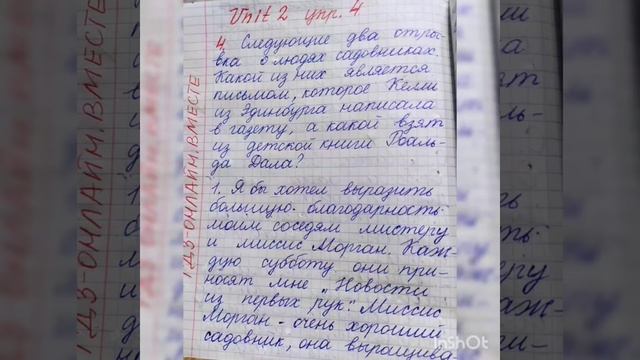 Unit 2 упр. 4
4 Следующие два отры-
вка о людях садовниках.
Какой из них является
письмом, которое Келли
из Эдинбурга написала
в газету, а какой взят
из детской книги Роаль-
да Дала?
1. Я бы хотел выразить
большую благодарность
моим соседям мистеру
и миссис Морган. Каж-
дую субботу они при-
носят мне „Новости
из первых рук". Миссис
Морган - очень хороший
садовник, она выращива
ГДЗ-ОНЛАЙН.ВМЕСТЕ
InShOt